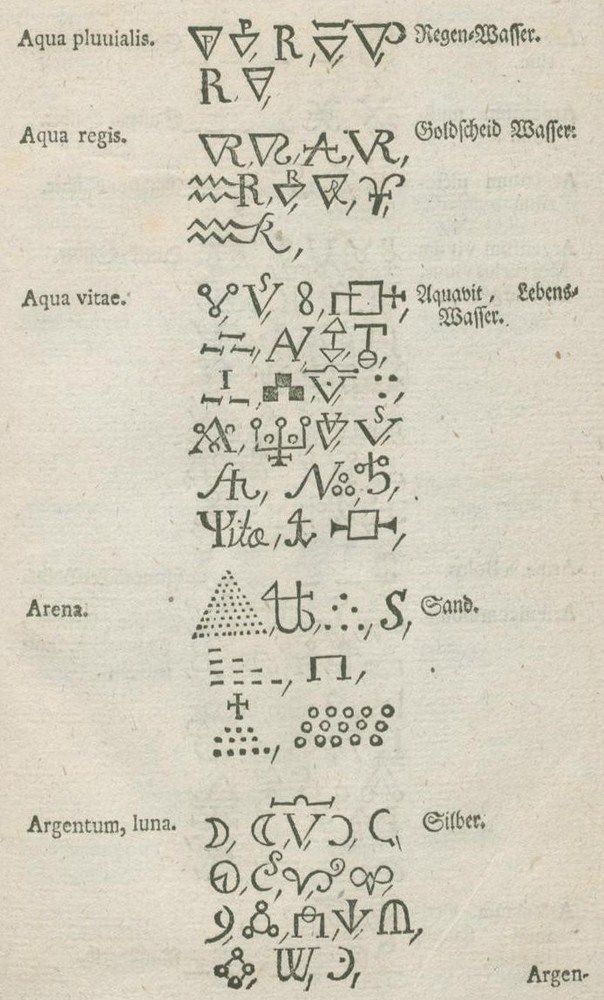 Aqua pluuialis. R Regen-Wasser.
R
Aqua regis. Goldscheid Wasser:
Aqua vitae. Aquavit, Lebens-
Wasser.
Vitæ
Arena. S Sand.
Argentum, luna. Silber.
Argen-